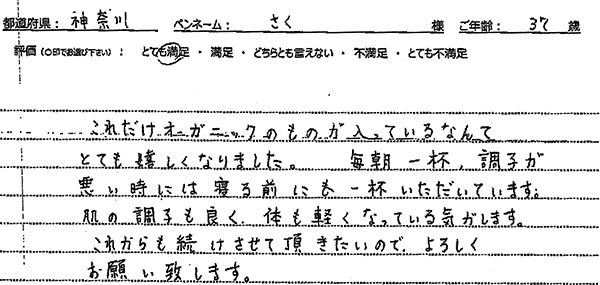 都道府県： 神奈川 ペンネーム： さく 様 ご年齢： 37 歳
評価（○印でお選び下さい）： とても満足 ・ 満足 ・ どちらとも言えない ・ 不満足 ・ とても不満足
これだけオーガニックのものが入っているなんて
とても嬉しくなりました。 毎朝一杯、調子が
悪い時には寝る前にも一杯いただいています。
肌の調子も良く、体も軽くなっている気がします。
これからも続けさせて頂きたいので、よろしく
お願い致します。